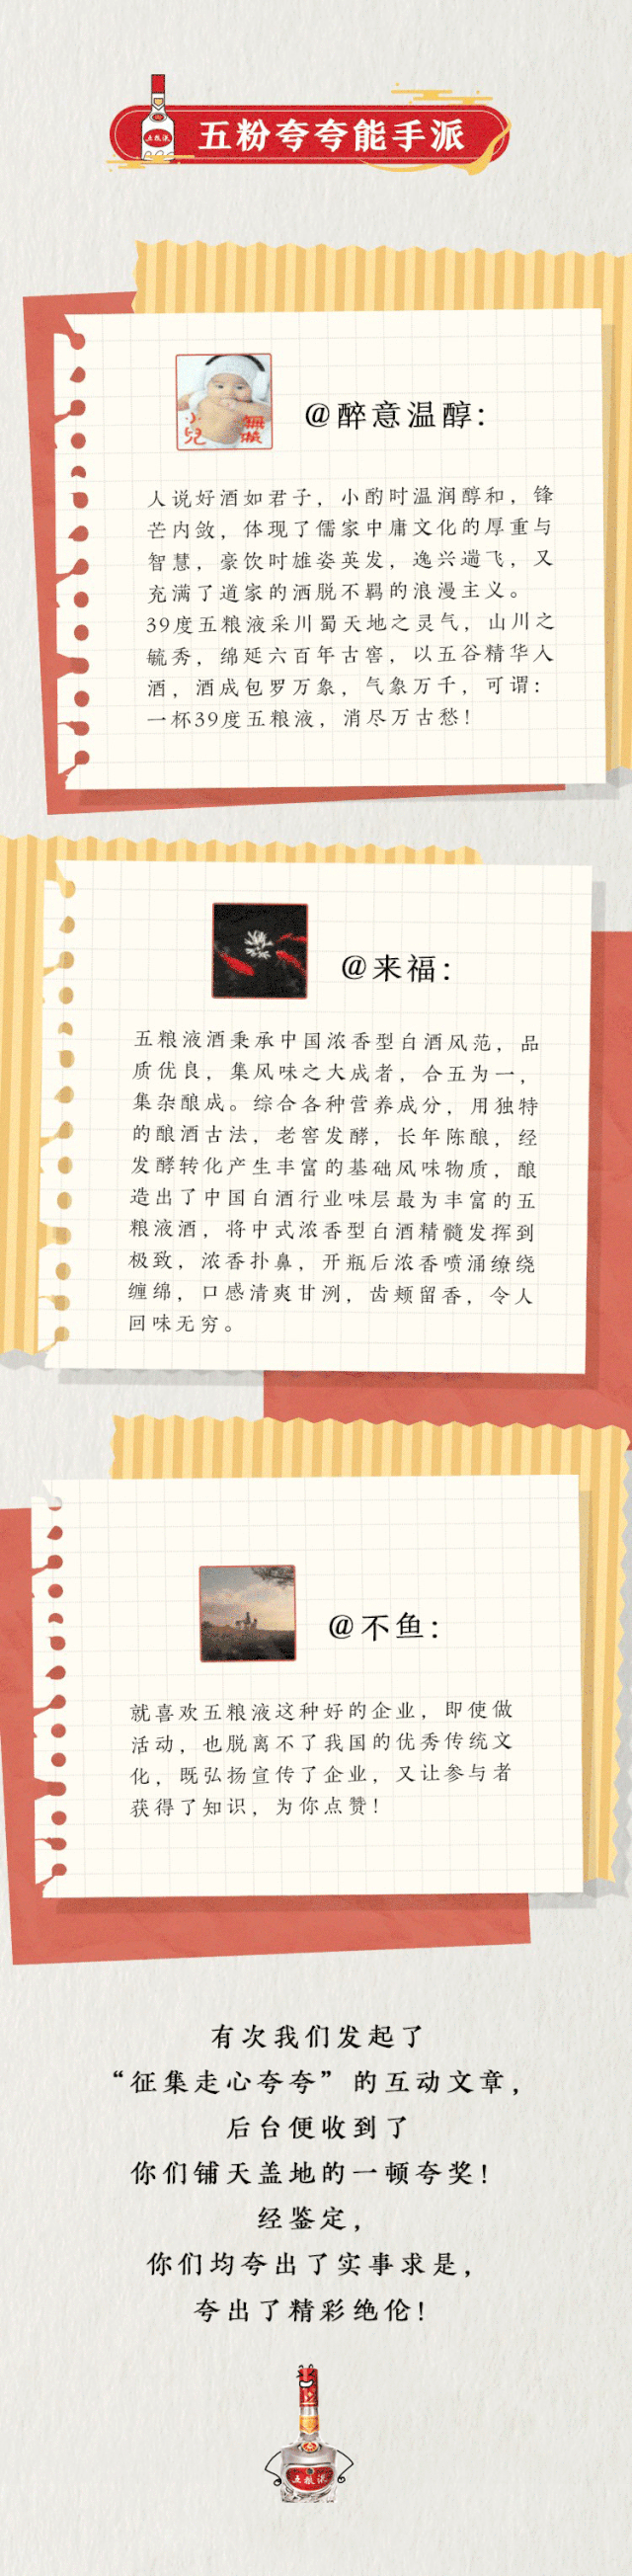 五粮液
五粉夸夸能手派
小兒
@醉意温醇：
人说好酒如君子，小酌时温润醇和，锋
芒内敛，体现了儒家中庸文化的厚重与
智慧，豪饮时雄姿英发，逸兴遄飞，又
充满了道家的洒脱不羁的浪漫主义。
39度五粮液采川蜀天地之灵气，山川之
毓秀，绵延六百年古窖，以五谷精华入
酒，酒成包罗万象，气象万千，可谓：
一杯39度五粮液，消尽万古愁！
@来福：
五粮液酒秉承中国浓香型白酒风范，品
质优良，集风味之大成者，合五为一，
集杂酿成。综合各种营养成分，用独特
的酿酒古法，老窖发酵，长年陈酿，经
发酵转化产生丰富的基础风味物质，酿
造出了中国白酒行业味层最为丰富的五
粮液酒，将中式浓香型白酒精髓发挥到
极致，浓香扑鼻，开瓶后浓香喷涌缭绕
缠绵，口感清爽甘洌，齿颊留香，令人
回味无穷。
@不鱼：
就喜欢五粮液这种好的企业，即使做
活动，也脱离不了我国的优秀传统文
化，既弘扬宣传了企业，又让参与者
获得了知识，为你点赞！
有次我们发起了
“征集走心夸夸”的互动文章，
后台便收到了
你们铺天盖地的一顿夸奖！
经鉴定，
你们均夸出了实事求是，
夸出了精彩绝伦！
五粮液